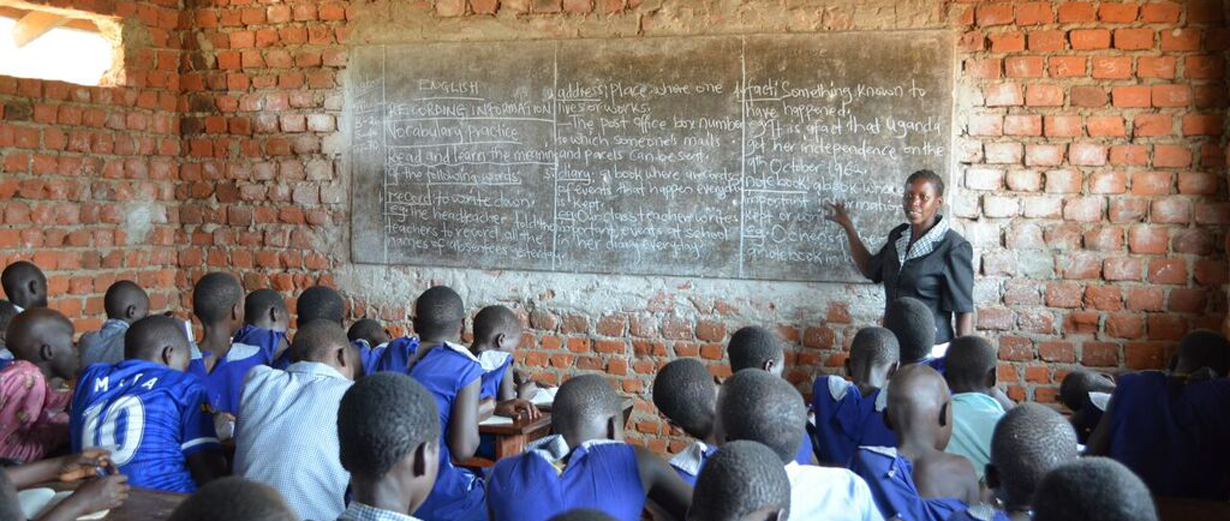 ENGLISH
RECORDING INFORMATION
Vocabulary practice
Read and learn the meaning
of the following words.
record: to write down.
eg: The headteacher told the
teachers to record all the
names of absentees yesterday.
address; place where one
lives or works.
The post office box number
to which someone's mails
and parcels can be sent.
diary: a book where records
of events that happen everyday
is kept.
eg Our class teacher writes
important events at school
in her diary everyday.
fact; Something known to
have happened.
eg It is a fact that Uganda
got her independence on the
9th October 1962
note book: a book where
important
kept or
eg:
a note book
MATA
10